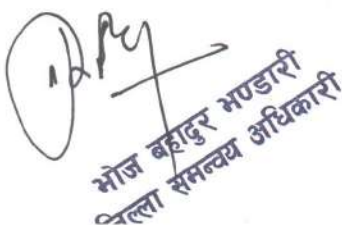 भोज बहादुर भण्डारी
जिल्ला समन्वय अधिकारी